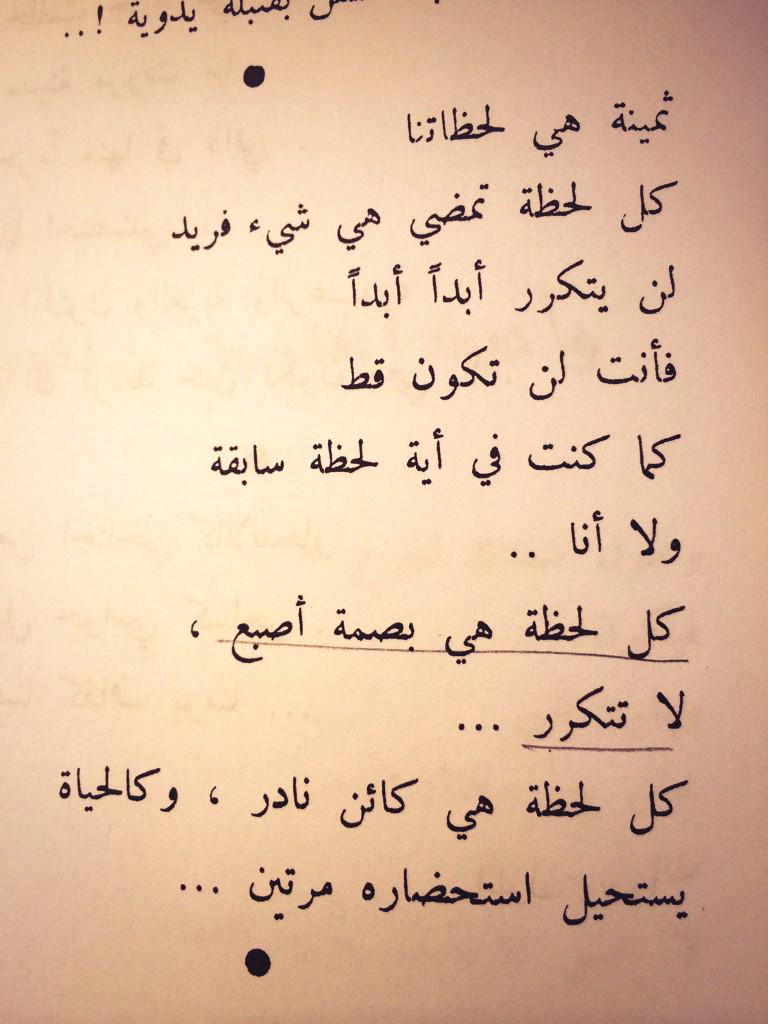 بقنبلة يدوية !..
ثمينة هي لحظاتنا
كل لحظة تمضي هي شيء فريد
لن يتكرر أبداً أبداً
فأنت لن تكون قط
كما كنت في أية لحظة سابقة
ولا أنا ..
كل لحظة هي بصمة أصبع ،
لا تتكرر ...
كل لحظة هي كائن نادر ، وكالحياة
يستحيل استحضاره مرتين ...